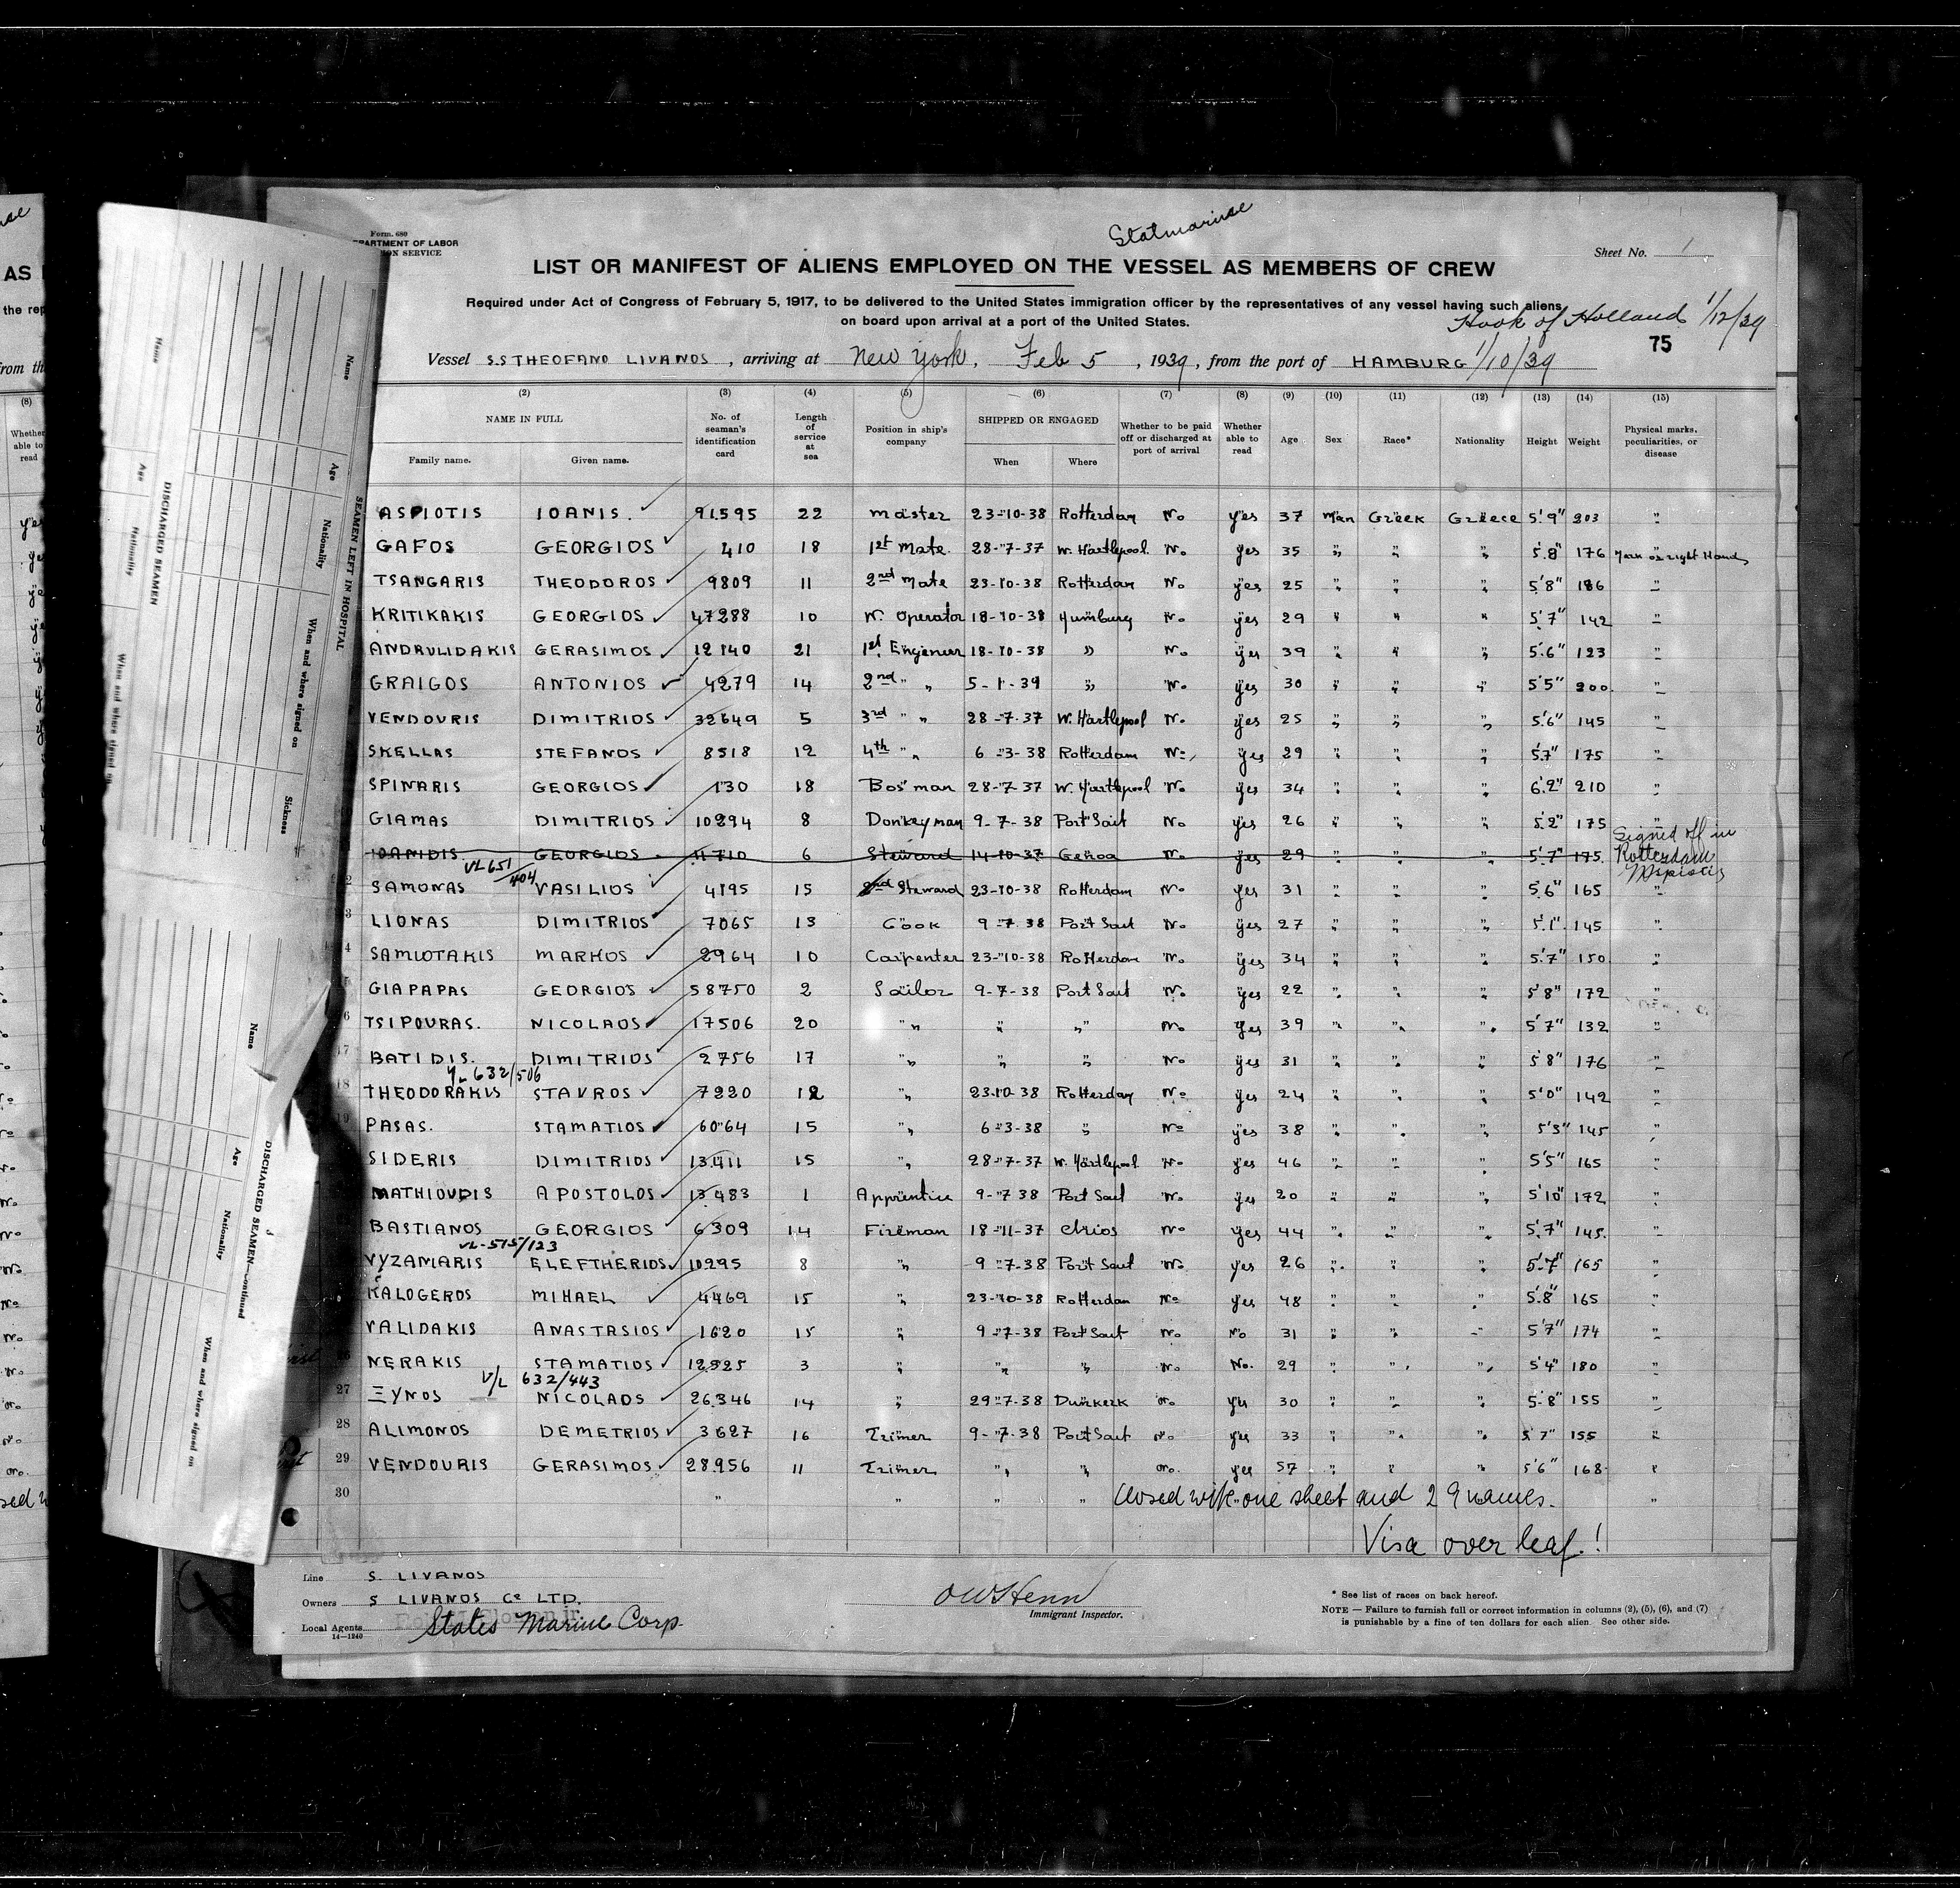 Statmarine
Form 680
DEPARTMENT OF LABOR
SERVICE
Sheet No. 1
LIST OR MANIFEST OF ALIENS EMPLOYED ON THE VESSEL AS MEMBERS OF CREW
Required under Act of Congress of February 5, 1917, to be delivered to the United States immigration officer by the representatives of any vessel having such aliens
on board upon arrival at a port of the United States.
Hook of Holland 1/12/39
75
Vessel S.S THEOFANO LIVANOS, arriving at New York, Feb 5, 1939, from the port of HAMBURG 1/10/39
(2) (3) (4) (5) (6) (7) (8) (9) (10) (11) (12) (13) (14) (15)
NAME IN FULL No. of seaman's identification card Length of service at sea Position in ship's company SHIPPED OR ENGAGED Whether to be paid off or discharged at port of arrival Whether able to read Age Sex Race* Nationality Height Weight Physical marks, peculiarities, or disease
Family name. Given name. When Where
ASPIOTIS IOANIS. 91595 22 Master 23-10-38 Rotterdam No Yes 37 Man Greek Greece 5'9" 203 "
GAFOS GEORGIOS 410 18 1st Mate. 28-7-37 W. Hartlepool. No Yes 35 " " " 5'8" 176 Mark on right Hand
TSANGARIS THEODOROS 9809 11 2nd Mate 23-10-38 Rotterdam No yes 25 " " " 5'8" 186 "
KRITIKAKIS GEORGIOS 47288 10 W. Operator 18-10-38 Humburg No yes 29 " " " 5'7" 142 "
ANDRULIDAKIS GERASIMOS 12140 21 1st Engeneer 18-10-38 " No yes 39 " " " 5'6" 123 "
GRAIGOS ANTONIOS 4279 14 2nd " " 5-1-39 " No yes 30 " " " 5'5" 200. "
VENDOURIS DIMITRIOS 32649 5 3rd " " 28-7-37 W. Hartlepool No yes 25 " " " 5'6" 145 "
SKELLAS STEFANOS 8518 12 4th " " 6-3-38 Rotterdam No yes 29 " " " 5'7" 175 "
SPINARIS GEORGIOS 130 18 Bos'man 28-7-37 W. Hartlepool No yes 34 " " " 6'2" 210 "
GIAMAS DIMITRIOS 10294 8 Donkeyman 9-7-38 Port Sait No yes 26 " " " 5'2" 175 "
IOANIDIS GEORGIOS 11710 6 Steward 14-10-37 Genoa No yes 29 " " " 5'7" 175. Signed off in Rotterdam
VL 651/404
SAMONAS VASILIOS 4195 15 2nd Steward 23-10-38 Rotterdam No yes 31 " " " 5'6" 165 "
LIONAS DIMITRIOS 7065 13 Cook 9-7-38 Port Sait No yes 27 " " " 5'1" 145 "
SAMIOTAKIS MARKOS 2964 10 Carpenter 23-10-38 Rotterdam No yes 34 " " " 5'7" 150 "
GIAPAPAS GEORGIOS 58750 2 Sailor 9-7-38 Port Sait No yes 22 " " " 5'8" 172 "
TSIPOURAS. NICOLAOS 17506 20 " " " No yes 39 " " " 5'7" 132 "
17 BATIDIS. DIMITRIOS 2756 17 " " " No yes 31 " " " 5'8" 176 "
VL 632/506
18 THEODORAKIS STAVROS 7220 12 " 23.10-38 Rotterdam No yes 24 " " " 5'0" 142 "
19 PASAS. STAMATIOS 6064 15 " 6-3-38 " No yes 38 " " " 5'3" 145 "
SIDERIS DIMITRIOS 13411 15 " 28-7-37 W. Hartlepool No yes 46 " " " 5'5" 165 "
MATHIOUDIS APOSTOLOS 13483 1 Apprentice 9-7 38 Port Sait No yes 20 " " " 5'10" 172 "
BASTIANOS GEORGIOS 6309 14 Fireman 18-11-37 Chios No yes 44 " " " 5'7" 145. "
VL-515/123
VYZAMARIS ELEFTHERIOS 10295 8 " 9-7-38 Port Sait No yes 26 " " " 5'7" 165 "
KALOGEROS MIHAEL 4469 15 " 23-10-38 Rotterdam No yes 48 " " " 5'8" 165 "
VALIDAKIS ANASTASIOS 1620 15 " 9-7-38 Port Sait No No 31 " " " 5'7" 174 "
NERAKIS STAMATIOS 12525 3 " " " No No. 29 " " " 5'4" 180 "
V/L 632/443
27 ΞYNOS NICOLAOS 26346 14 " 29-7-38 Dunkerk No yes 30 " " " 5-8" 155 "
28 ALIMONOS DEMETRIOS 3627 16 Trimer 9-7-38 Port Sait No yes 33 " " " 5'7" 155 "
29 VENDOURIS GERASIMOS 28956 11 Trimer " " No. yes 57 " " " 5'6" 168 "
30 " " " " Closed with one sheet and 29 names. "
Visa over leaf!
Line S. LIVANOS
Owners S LIVANOS Co LTD.
Local Agents States Marine Corp.
14—1240
OW Henn
Immigrant Inspector.
* See list of races on back hereof.
NOTE — Failure to furnish full or correct information in columns (2), (5), (6), and (7)
is punishable by a fine of ten dollars for each alien. See other side.
SEAMEN LEFT IN HOSPITAL
Name Age Nationality When and where signed on Sickness
DISCHARGED SEAMEN
Name Age Nationality When and where signed on
DISCHARGED SEAMEN—Continued
Name Age Nationality When and where signed on